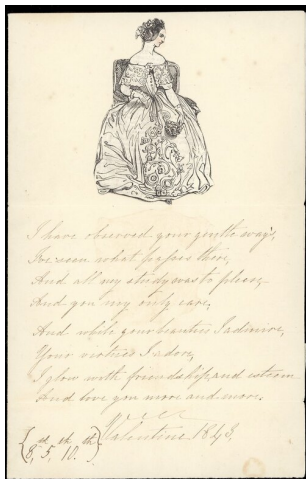 I have observed your gentle ways,
I've seen what passes there,
And all my study was to please,
And you my only care,
And while your beauties I admire,
Your virtues I adore,
I glow with friendship, and esteem
And love you more and more.
Valentine 1843.
8, 5, 10.